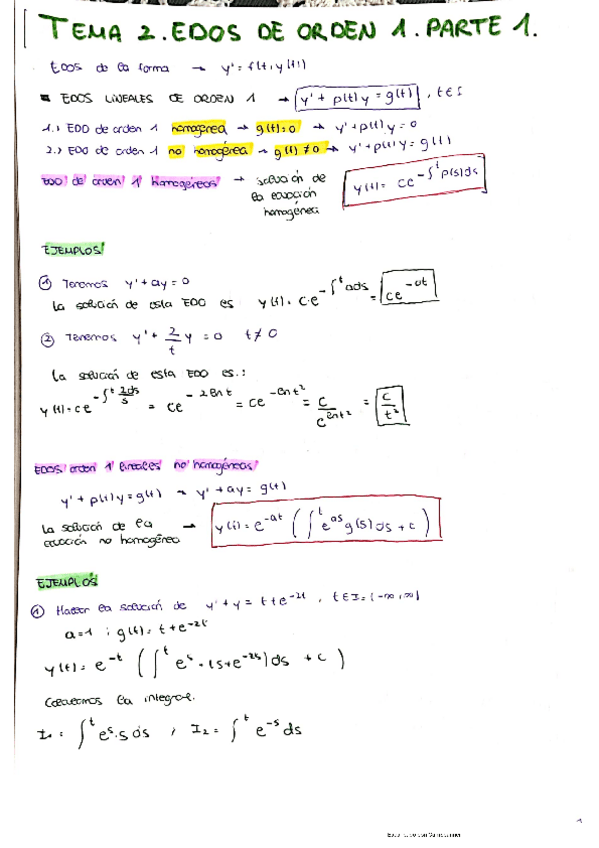 TEMA 2. EDOS DE ORDEN 1. PARTE 1.
EDOS de la forma → y' = f(t, y(t))
EDOS LINEALES DE ORDEN 1 → y' + p(t)y = g(t), t∈I
1.) EDO de orden 1 homogénea → g(t)=0 → y' + p(t)y = 0
2.) EDO de orden 1 no homogénea → g(t) ≠ 0 → y' + p(t)y = g(t)
EDO de orden 1 homogéneas → solución de la ecuación homogénea y(t) = ce^{-∫^t p(s)ds}
EJEMPLOS
① Tenemos y' + ay = 0
La solución de esta EDO es y(t) = c·e^{-∫^t a ds} = ce^{-at}
② Tenemos y' + 2/t y = 0 t≠0
La solución de esta EDO es:
y(t) = ce^{-∫^t 2ds/s} = ce^{-2ln t} = ce^{-ln t²} = c/e^{ln t²} = c/t²
EDOS orden 1 lineales no homogéneas
y' + p(t)y = g(t) → y' + ay = g(t)
La solución de la ecuación no homogénea → y(t) = e^{-at} (∫^t e^{as} g(s) ds + c)
EJEMPLOS
① Hallar la solución de y' + y = t + e^{-2t}, t∈I = (-∞, ∞)
a=1 ; g(t) = t + e^{-2t}
y(t) = e^{-t} (∫^t e^s · (s + e^{-2s}) ds + c)
Calculamos la integral.
I₁ = ∫^t e^s·s ds ; I₂ = ∫^t e^{-s} ds
1
Escaneado con CamScanner